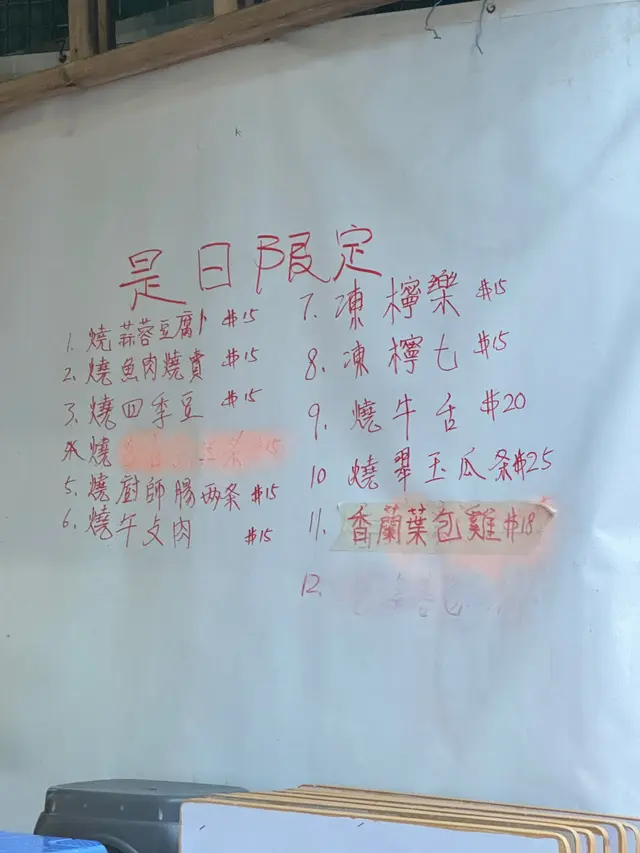 是日限定
1. 燒蒜蓉豆腐卜 $15
2. 燒魚肉燒賣 $15
3. 燒四季豆 $15
燒 $15
5. 燒廚師腸两条 $15
6. 燒午攴肉 $15
7. 凍檸樂 $15
8. 凍檸七 $15
9. 燒牛舌 $20
10 燒翠玉瓜条$25
11. 香蘭葉包雞$18
12.